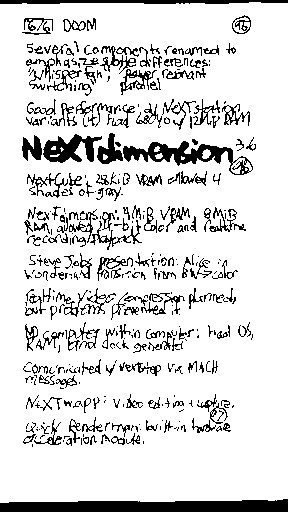 6/6 DOOM 96
Several components renamed to
emphasize subtle differences:
"whisper fan", "power resonant
switching" parallel
Good performance: all NeXTstation
variants had 68040 w/ RAM
NeXTdimension 3.6
NextCube: 256KiB VRAM allowed 4
shades of gray.
NextDimension: 4MiB VRAM, 8MiB
RAM, allowed 24-bit color and realtime
recording/playback
Steve Jobs presentation: Alice in
Wonderland transition from B&W->color
realtime video compression planned,
but problems prevented it
computer within computer: had OS,
RAM, and dock generated
Comunicated w/ Nextstep via MACH
messages.
NeXTtv.app: video editing + capture.
Quick Renderman: built-in hardware
acceleration module.